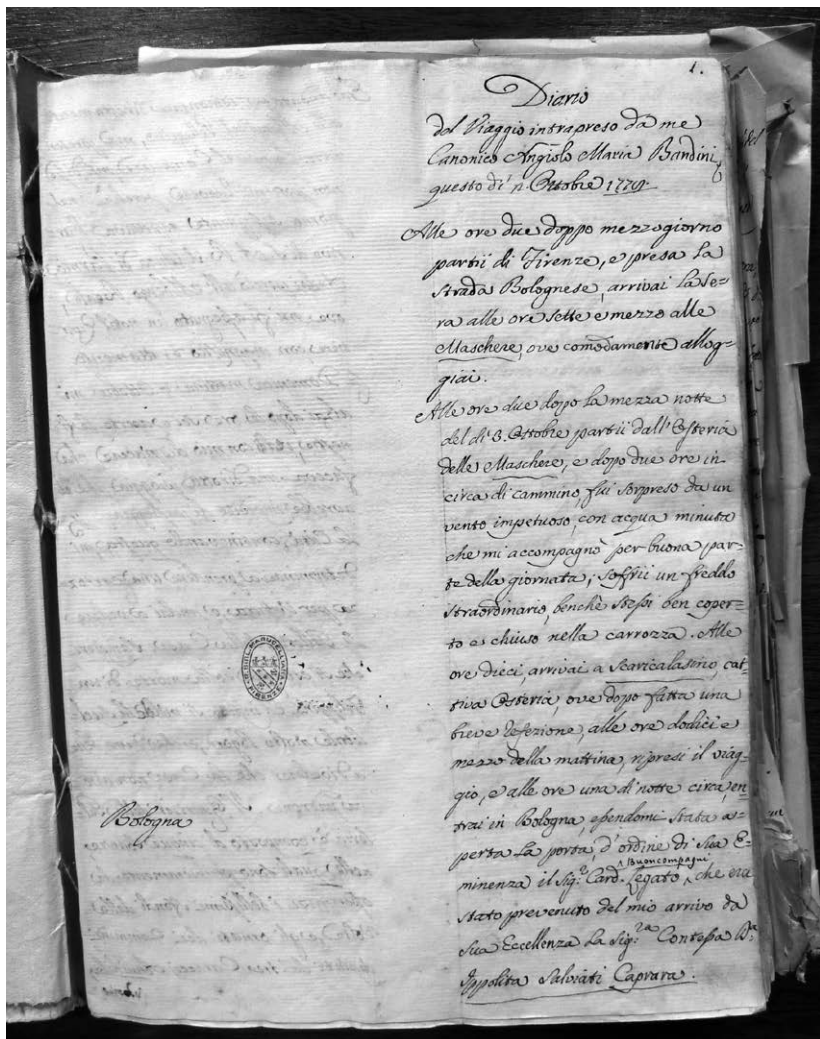 1.
Diario
del Viaggio intrapreso da me
Canonico Angiolo Maria Bandini
questo dì Ottobre
Alle ore due doppo mezzogiorno
partii di Firenze, e presa la
strada Bolognese, arrivai la se=
ra alle ore sette e mezzo alle
Maschere, ove comodamente allog=
giai.
Alle ore due dopo la mezza notte
del dì 8. Ottobre partii dall'Osteria
delle Maschere, e dopo due ore in
circa di cammino, fui sorpreso da un
vento impetuoso, con acqua minuta
che mi accompagnò per buona par=
te della giornata; soffrii un freddo
straordinario, benchè stessi ben coper=
to e chiuso nella carrozza. Alle
ore dieci, arrivai a Scaricalasino, cat=
tiva Osteria, ove dopo fatta una
breve refezione, alle ore dodici e
mezzo della mattina, ripresi il viag=
gio, e alle ore una di notte circa, en=
Bologna
trai in Bologna, essendomi stata a=
perta la porta, d'ordine di Sua E=
minenza il Sig.e Card. Legato, Buoncompagni che era
stato prevenuto del mio arrivo da
Sua Eccellenza la Sig.ra Contessa D.a
Ippolita Salviati Caprara.
BIBL. MARUCELLIANA
FIRENZE